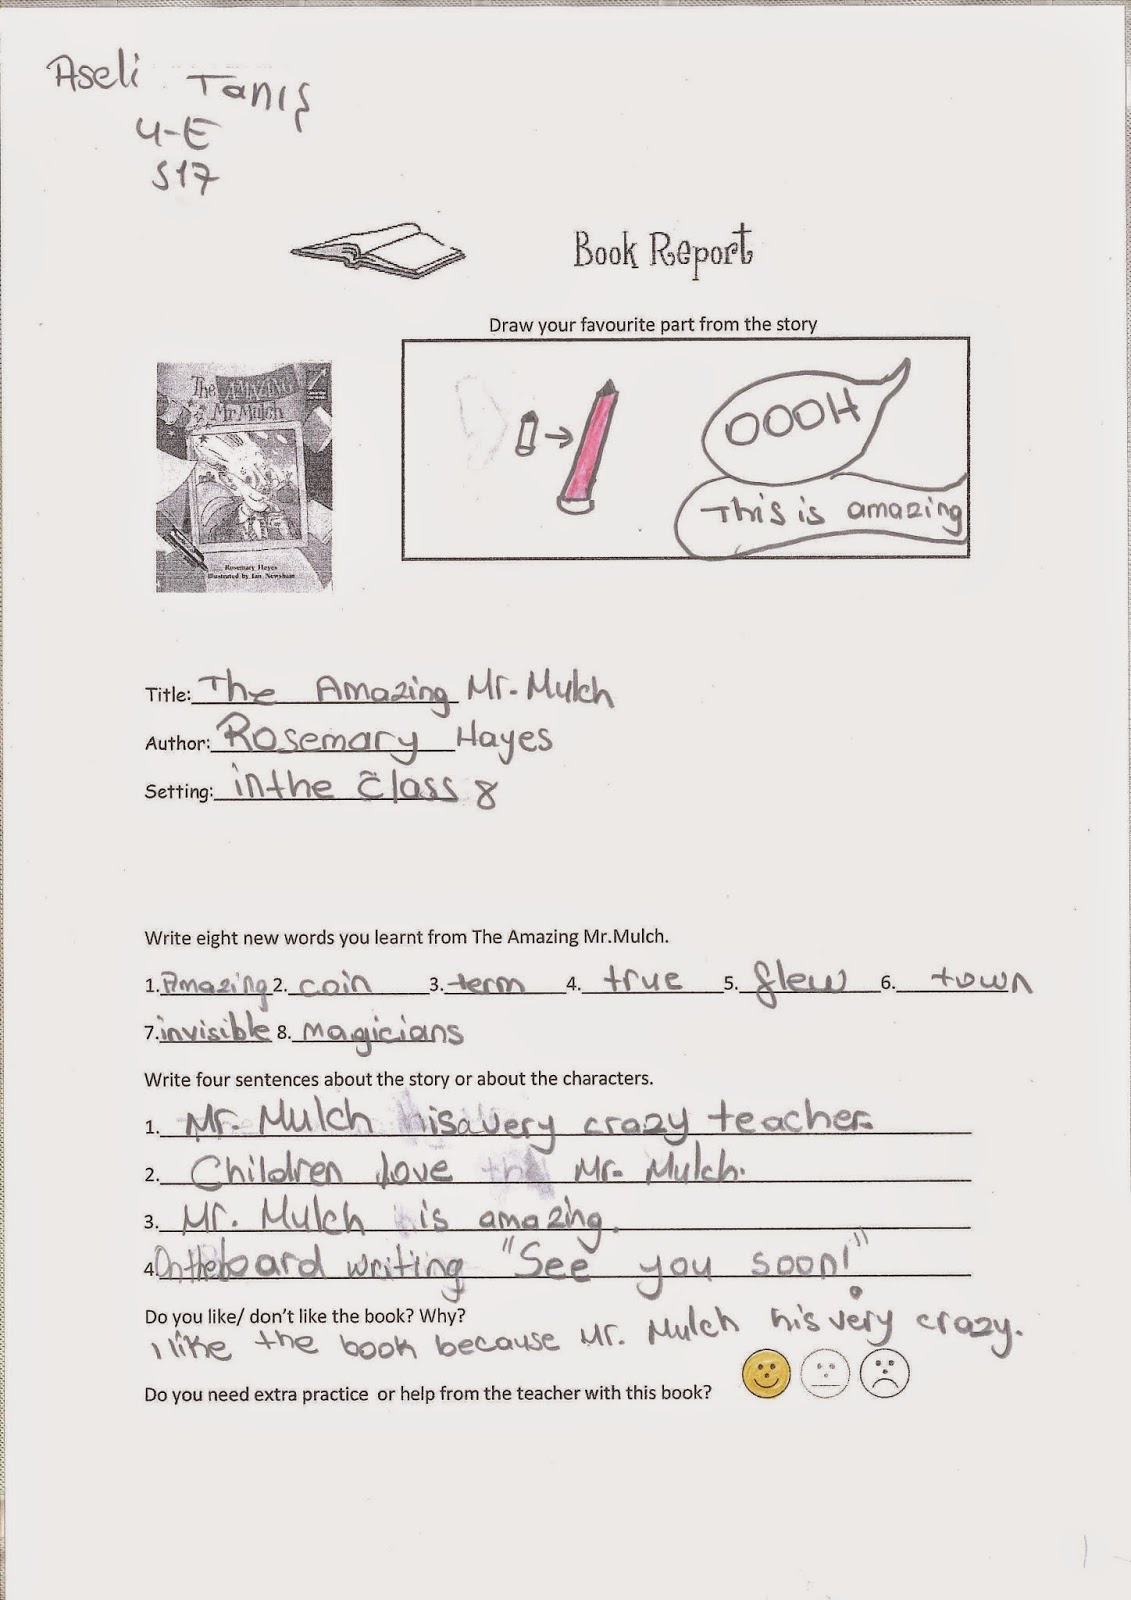 Aseli Tanış
4-E
517
Book Report
Draw your favourite part from the story
The AMAZING
Mr Mulch
Rosemary Hayes
Illustrated by Ian Newsham
OOOH
This is amazing
Title: The Amazing Mr. Mulch
Author: Rosemary Hayes
Setting: inthe Class 8
Write eight new words you learnt from The Amazing Mr.Mulch.
1. Amazing 2. coin 3. term 4. true 5. flew 6. town
7. invisible 8. magicians
Write four sentences about the story or about the characters.
1. Mr. Mulch is a very crazy teacher.
2. Children love Mr. Mulch.
3. Mr. Mulch is amazing.
4. On the board writing "See you soon!"
Do you like/ don't like the book? Why?
I like the book because Mr. Mulch his very crazy.
Do you need extra practice or help from the teacher with this book?